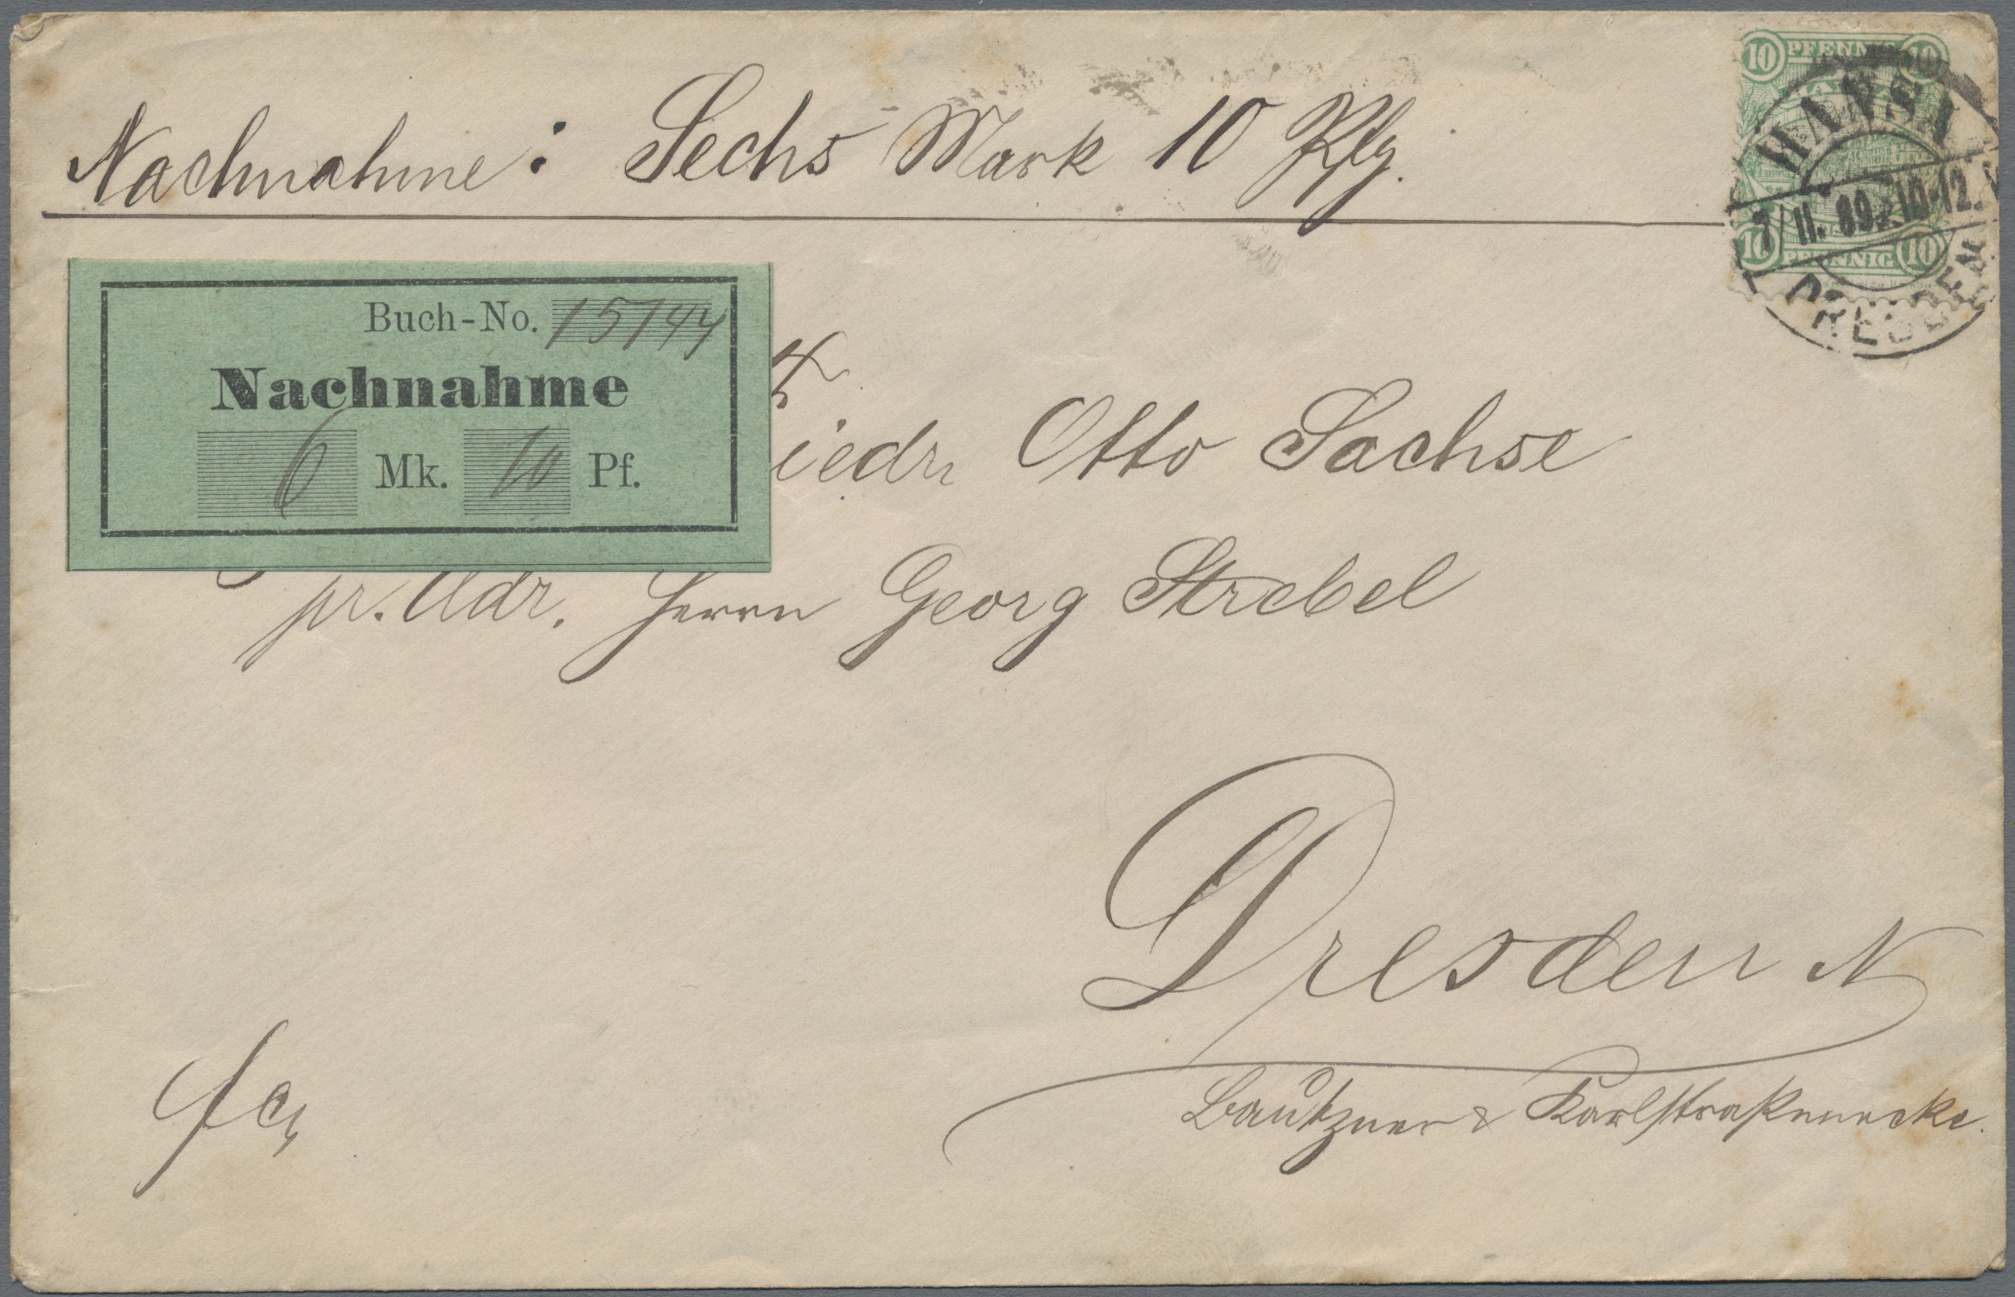 Nachnahme: Sechs Mark 10 Pfg.
10 PFENNIG 10
HANSA
7/11. 89. 10-12.
10 PFENNIG 10
DRESDEN
Buch-No. 15744
Nachnahme
6 Mk. 10 Pf.
iedr. Otto Sachse
pr. Adr. Herrn Georg Strebel
Dresden N
Bautzner & Karlstraßenecke.